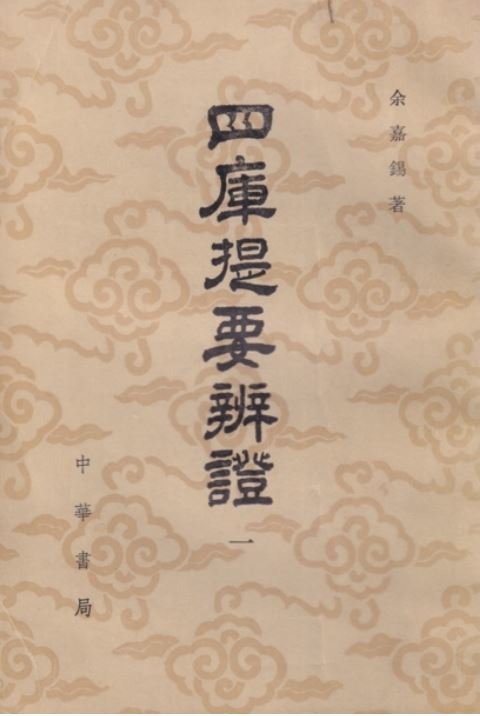 余嘉錫著
四庫提要辨證
一
中華書局